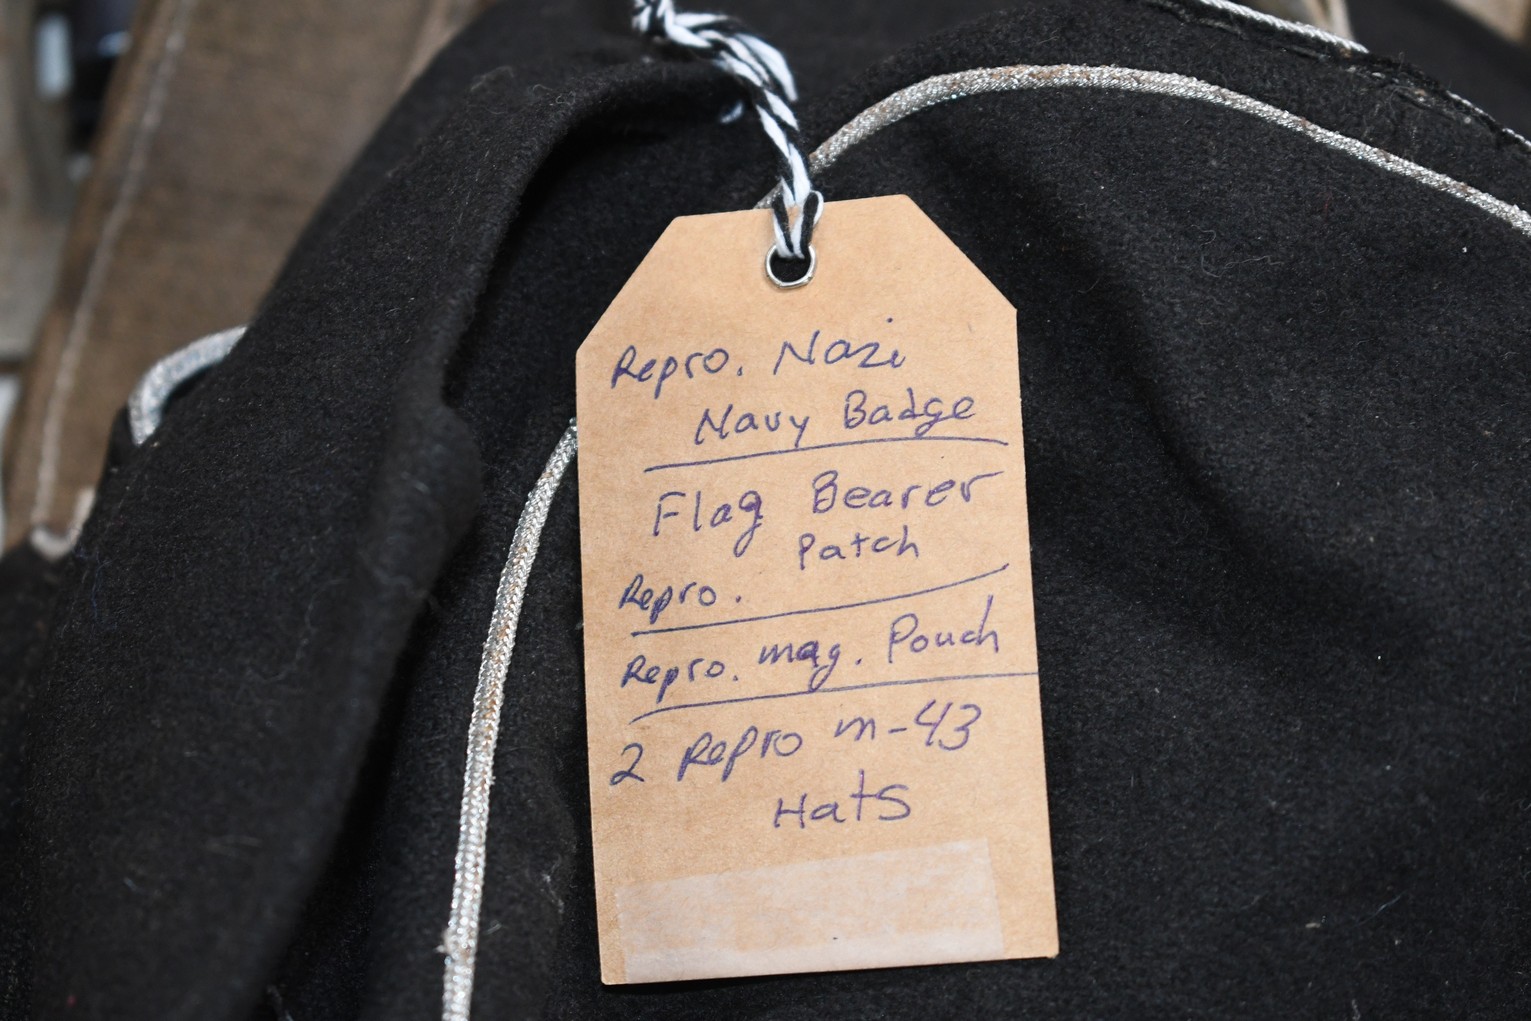 Repro. Nazi
Navy Badge
Flag Bearer
Patch
Repro.
Repro. mag. Pouch
2 Repro m-43
Hats